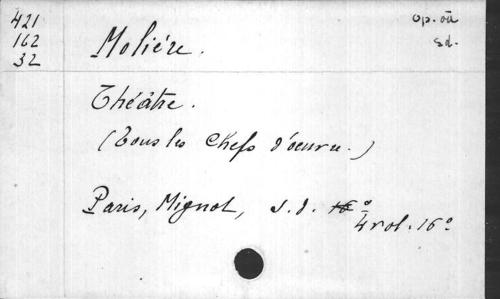 421
162
32
op. où
s d.
Molière.
Théâtre.
(Tous les Chefs d'oeuvre.)
Paris, Mignot, s. d. 16°
4 vol. 16°